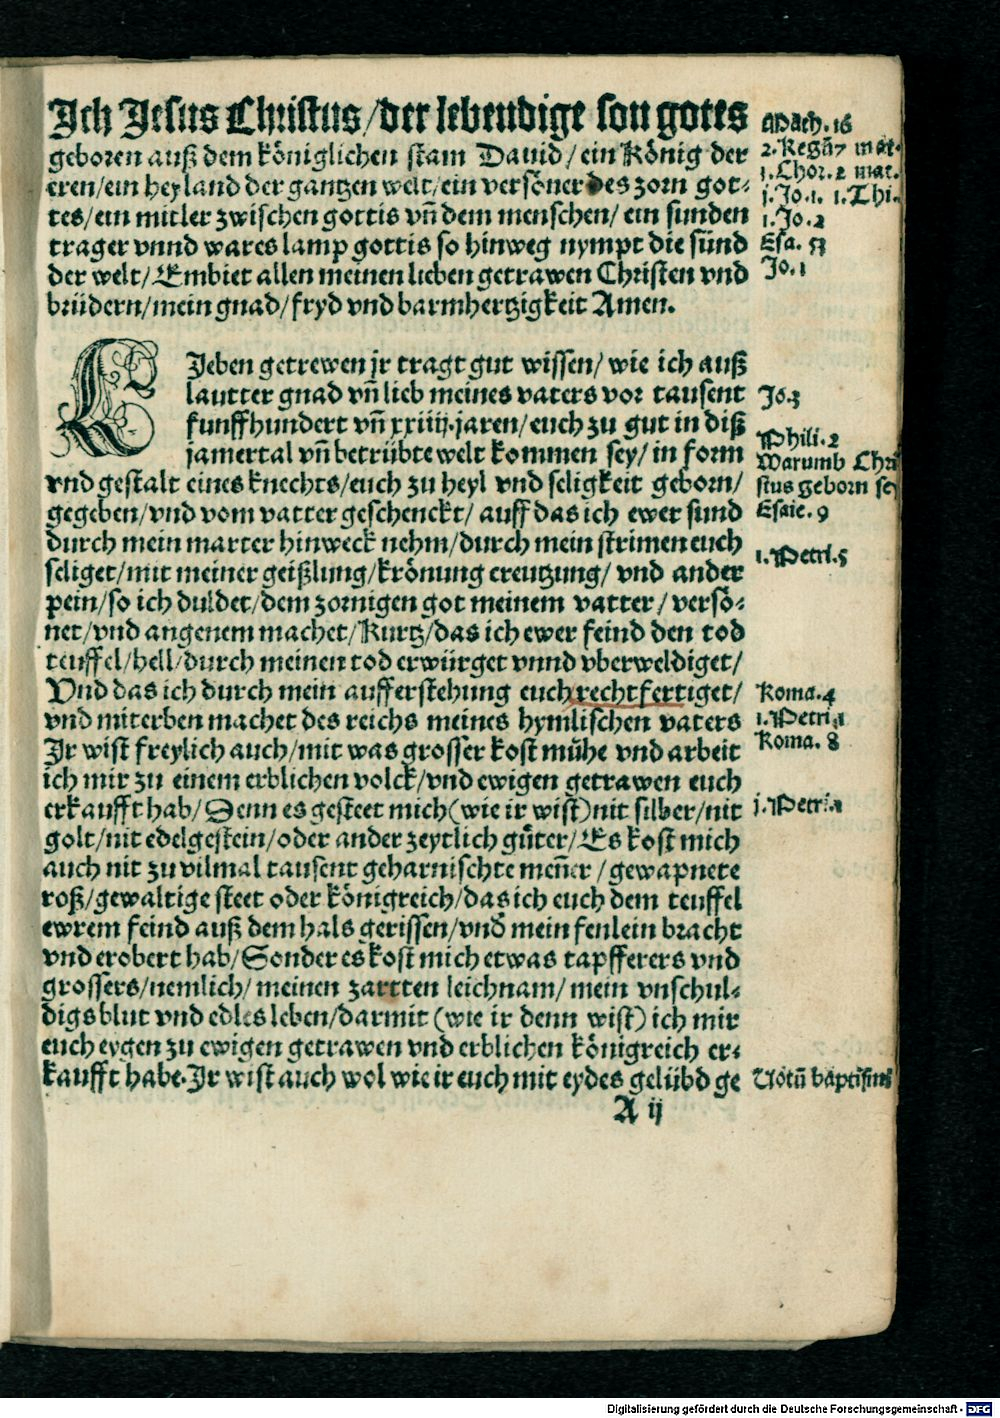 Ich Jesus Christus/der lebendige son gottes
geboren auß dem königlichen stam Dauid/ein König der
eren/ein heyland der gantzen welt/ein versöner des zorn got-
tes/ein mitler zwischen gottis vn̄ dem menschen/ein sunden
trager vnnd wares lamp gottis so hinweg nympt die sünd
der welt/Embiet allen meinen lieben getrawen Christen vnd
brüdern/mein gnad/fryd vnd barmhertzigkeit Amen.
Math. 16
2. Regū 7 mat.
1. Chor. 2 mat.
j. Jo. 1. 1. Thi.
1. Jo. 2
Esa. 53
Jo. 1
LJeben getrewen jr tragt gut wissen/wie ich auß
lautter gnad vn̄ lieb meines vaters vor tausent
funffhundert vn̄ xxiiij. jaren/euch zu gut in diß
jamertal vn̄ betrübte welt kommen sey/in form
vnd gestalt eines knechts/euch zu heyl vnd seligkeit geborn/
gegeben/vnd vom vatter geschenckt/auff das ich ewer sund
durch mein marter hinweck nehm/durch mein strimen euch
seliget/mit meiner geißlung/krönung creutzung/vnd ander
pein/so ich duldet/dem zornigen got meinem vatter/versö-
net/vnd angenem machet/Kurtz/das ich ewer feind den tod
teuffel/hell/durch meinen tod erwürget vnnd vberweldiget/
Vnd das ich durch mein aufferstehung euch rechtfertiget/
vnd miterben machet des reichs meines hymlischen vaters
Jr wist freylich auch/mit was grosser kost mühe vnd arbeit
ich mir zu einem erblichen volck/vnd ewigen getrawen euch
erkaufft hab/Denn es gesteet mich (wie ir wist) nit silber/nit
golt/nit edelgestein/oder ander zeytlich gůter/Es kost mich
auch nit zu vilmal tausent geharnischte men̄er/gewapnete
roß/gewaltige steet oder königreich/das ich euch dem teuffel
ewrem feind auß dem hals gerissen/vnd mein fenlein bracht
vnd erobert hab/Sonder es kost mich etwas tapfferers vnd
grossers/nemlich/meinen zartten leichnam/mein vnschul-
digs blut vnd edles leben/darmit (wie ir denn wist) ich mir
euch eygen zu ewigen getrawen vnd erblichen königreich er-
kaufft habe. Jr wist auch wol wie ir euch mit eydes gelübd ge
Jo. 3
Phili. 2
Warumb Chri
stus geborn sey
Esaie. 9
1. Petri. 5
Roma. 4
1. Petri 1
Roma. 8
j. Petri 1
Votū baptismi
A ij
Digitalisierung gefördert durch die Deutsche Forschungsgemeinschaft - DFG